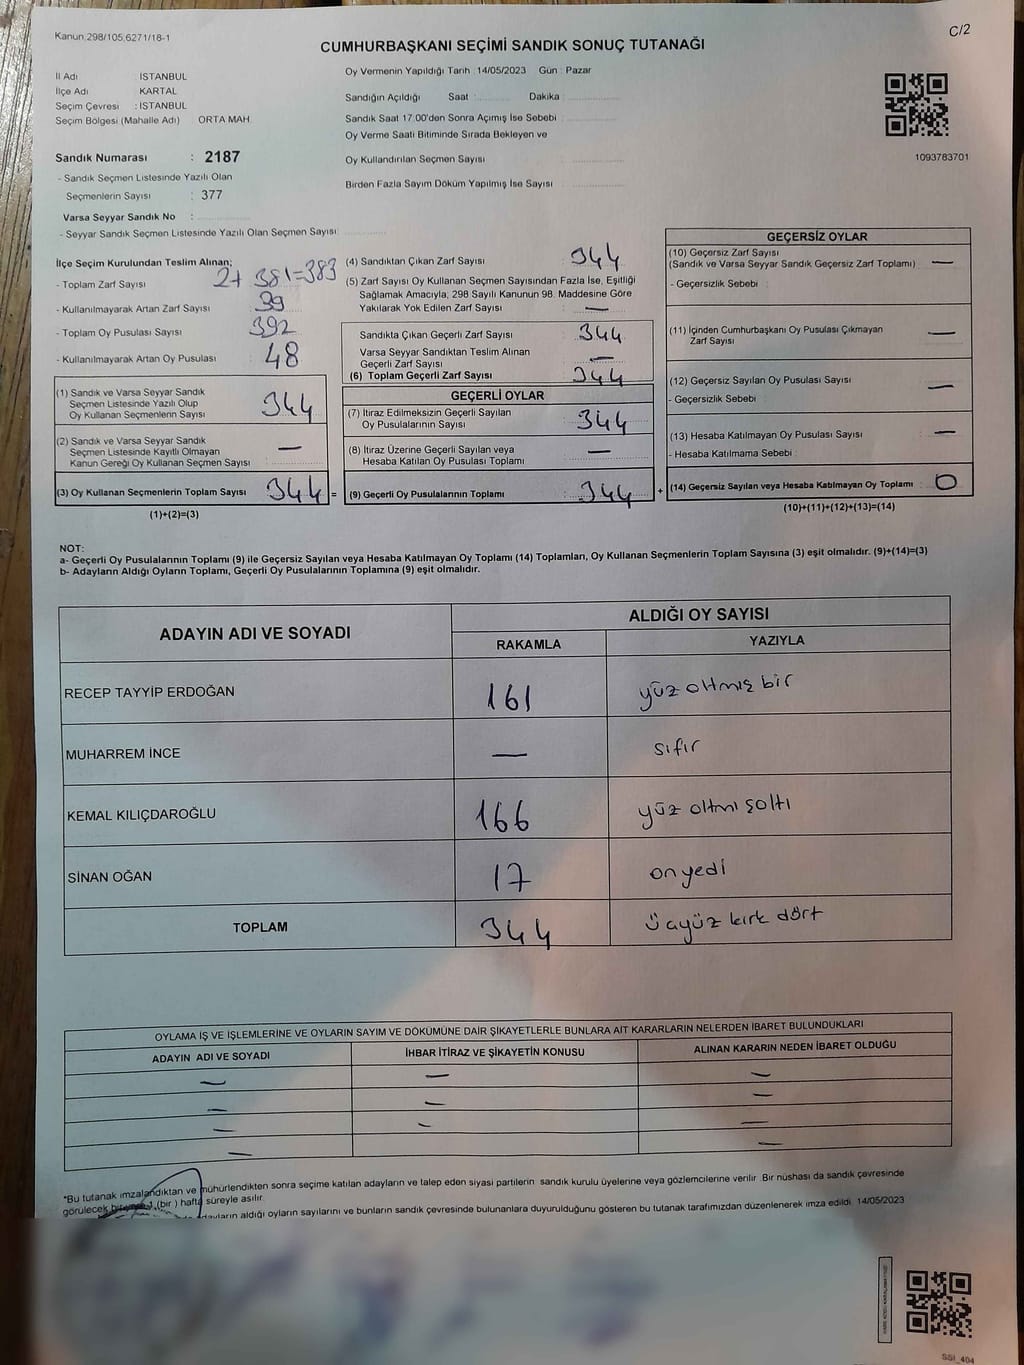 Kanun:298/105,6271/18-1
C/2
CUMHURBAŞKANI SEÇİMİ SANDIK SONUÇ TUTANAĞI
İl Adı : İSTANBUL
İlçe Adı : KARTAL
Seçim Çevresi : İSTANBUL
Seçim Bölgesi (Mahalle Adı) ORTA MAH.
Sandık Numarası : 2187
- Sandık Seçmen Listesinde Yazılı Olan
Seçmenlerin Sayısı : 377
Varsa Seyyar Sandık No :
- Seyyar Sandık Seçmen Listesinde Yazılı Olan Seçmen Sayısı
Oy Vermenin Yapıldığı Tarih :14/05/2023 Gün : Pazar
Sandığın Açıldığı Saat : Dakika :
Sandık Saat 17:00'den Sonra Açımış İse Sebebi :
Oy Verme Saati Bitiminde Sırada Bekleyen ve
Oy Kullandırılan Seçmen Sayısı :
Birden Fazla Sayım Döküm Yapılmış İse Sayısı :
1093783701
İlçe Seçim Kurulundan Teslim Alınan;
- Toplam Zarf Sayısı 2+381=383
- Kullanılmayarak Artan Zarf Sayısı : 39
- Toplam Oy Pusulası Sayısı 392
- Kullanılmayarak Artan Oy Pusulası : 48
(1) Sandık ve Varsa Seyyar Sandık
Seçmen Listesinde Yazılı Olup
Oy Kullanan Seçmenlerin Sayısı : 344
(2) Sandık ve Varsa Seyyar Sandık
Seçmen Listesinde Kayıtlı Olmayan
Kanun Gereği Oy Kullanan Seçmen Sayısı : —
(3) Oy Kullanan Seçmenlerin Toplam Sayısı : 344 =
(1)+(2)=(3)
(4) Sandıktan Çıkan Zarf Sayısı : 344
(5) Zarf Sayısı Oy Kullanan Seçmen Sayısından Fazla İse, Eşitliği
Sağlamak Amacıyla, 298 Sayılı Kanunun 98. Maddesine Göre
Yakılarak Yok Edilen Zarf Sayısı : —
Sandıkta Çıkan Geçerli Zarf Sayısı : 344
Varsa Seyyar Sandıktan Teslim Alınan
Geçerli Zarf Sayısı : —
(6) Toplam Geçerli Zarf Sayısı : 344
GEÇERLİ OYLAR
(7) İtiraz Edilmeksizin Geçerli Sayılan
Oy Pusulalarının Sayısı : 344
(8) İtiraz Üzerine Geçerli Sayılan veya
Hesaba Katılan Oy Pusulası Toplamı : —
(9) Geçerli Oy Pusulalarının Toplamı : 344 +
GEÇERSİZ OYLAR
(10) Geçersiz Zarf Sayısı
(Sandık ve Varsa Seyyar Sandık Geçersiz Zarf Toplamı) : —
- Geçersizlik Sebebi :
(11) İçinden Cumhurbaşkanı Oy Pusulası Çıkmayan
Zarf Sayısı : —
(12) Geçersiz Sayılan Oy Pusulası Sayısı : —
- Geçersizlik Sebebi :
(13) Hesaba Katılmayan Oy Pusulası Sayısı : —
- Hesaba Katılmama Sebebi :
(14) Geçersiz Sayılan veya Hesaba Katılmayan Oy Toplamı : 0
(10)+(11)+(12)+(13)=(14)
NOT:
a- Geçerli Oy Pusulalarının Toplamı (9) ile Geçersiz Sayılan veya Hesaba Katılmayan Oy Toplamı (14) Toplamları, Oy Kullanan Seçmenlerin Toplam Sayısına (3) eşit olmalıdır. (9)+(14)=(3)
b- Adayların Aldığı Oyların Toplamı, Geçerli Oy Pusulalarının Toplamına (9) eşit olmalıdır.
ADAYIN ADI VE SOYADI
ALDIĞI OY SAYISI
RAKAMLA YAZIYLA
RECEP TAYYİP ERDOĞAN 161 yüz altmış bir
MUHARREM İNCE — sıfır
KEMAL KILIÇDAROĞLU 166 yüz altmışaltı
SİNAN OĞAN 17 onyedi
TOPLAM 344 üçyüz kırk dört
OYLAMA İŞ VE İŞLEMLERİNE VE OYLARIN SAYIM VE DÖKÜMÜNE DAİR ŞİKAYETLERLE BUNLARA AİT KARARLARIN NELERDEN İBARET BULUNDUKLARI
ADAYIN ADI VE SOYADI İHBAR İTİRAZ VE ŞİKAYETİN KONUSU ALINAN KARARIN NEDEN İBARET OLDUĞU
— — —
— — —
— — —
— —
*Bu tutanak imzalandıktan ve mühürlendikten sonra seçime katılan adayların ve talep eden siyasi partilerin sandık kurulu üyelerine veya gözlemcilerine verilir. Bir nüshası da sandık çevresinde
görülecek bir yere 1 (bir ) hafta süreyle asılır.
aldığı oyların sayılarını ve bunların sandık çevresinde bulunanlara duyurulduğunu gösteren bu tutanak tarafımızdan düzenlenerek imza edildi. 14/05/2023
SSI_404